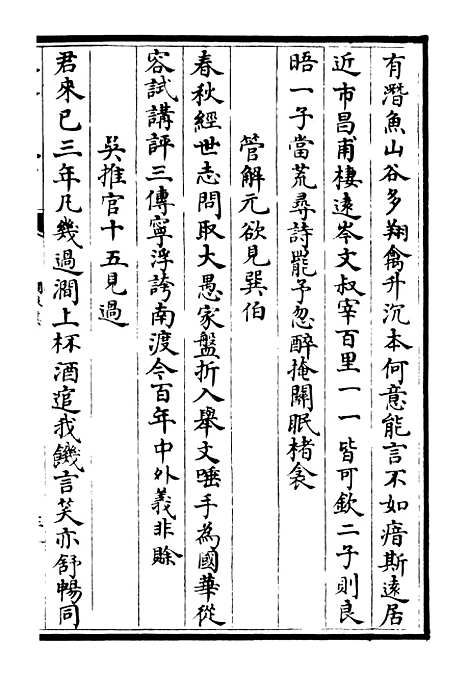 有潛魚山谷多翔禽升沉本何意能言不如瘖斯遠居
近市昌甫棲遠岑文叔宰百里一一皆可欽二子則良
晤一子當荒尋詩罷予忽醉掩關眠楮衾
管解元欲見巽伯
春秋經世志問取大愚家盤折入舉文唾手為國華從
容試講評三傳寧浮誇南渡今百年中外義非賒
吳推官十五見過
君來已三年凡幾過澗上杯酒追我饑言笑亦舒暢同